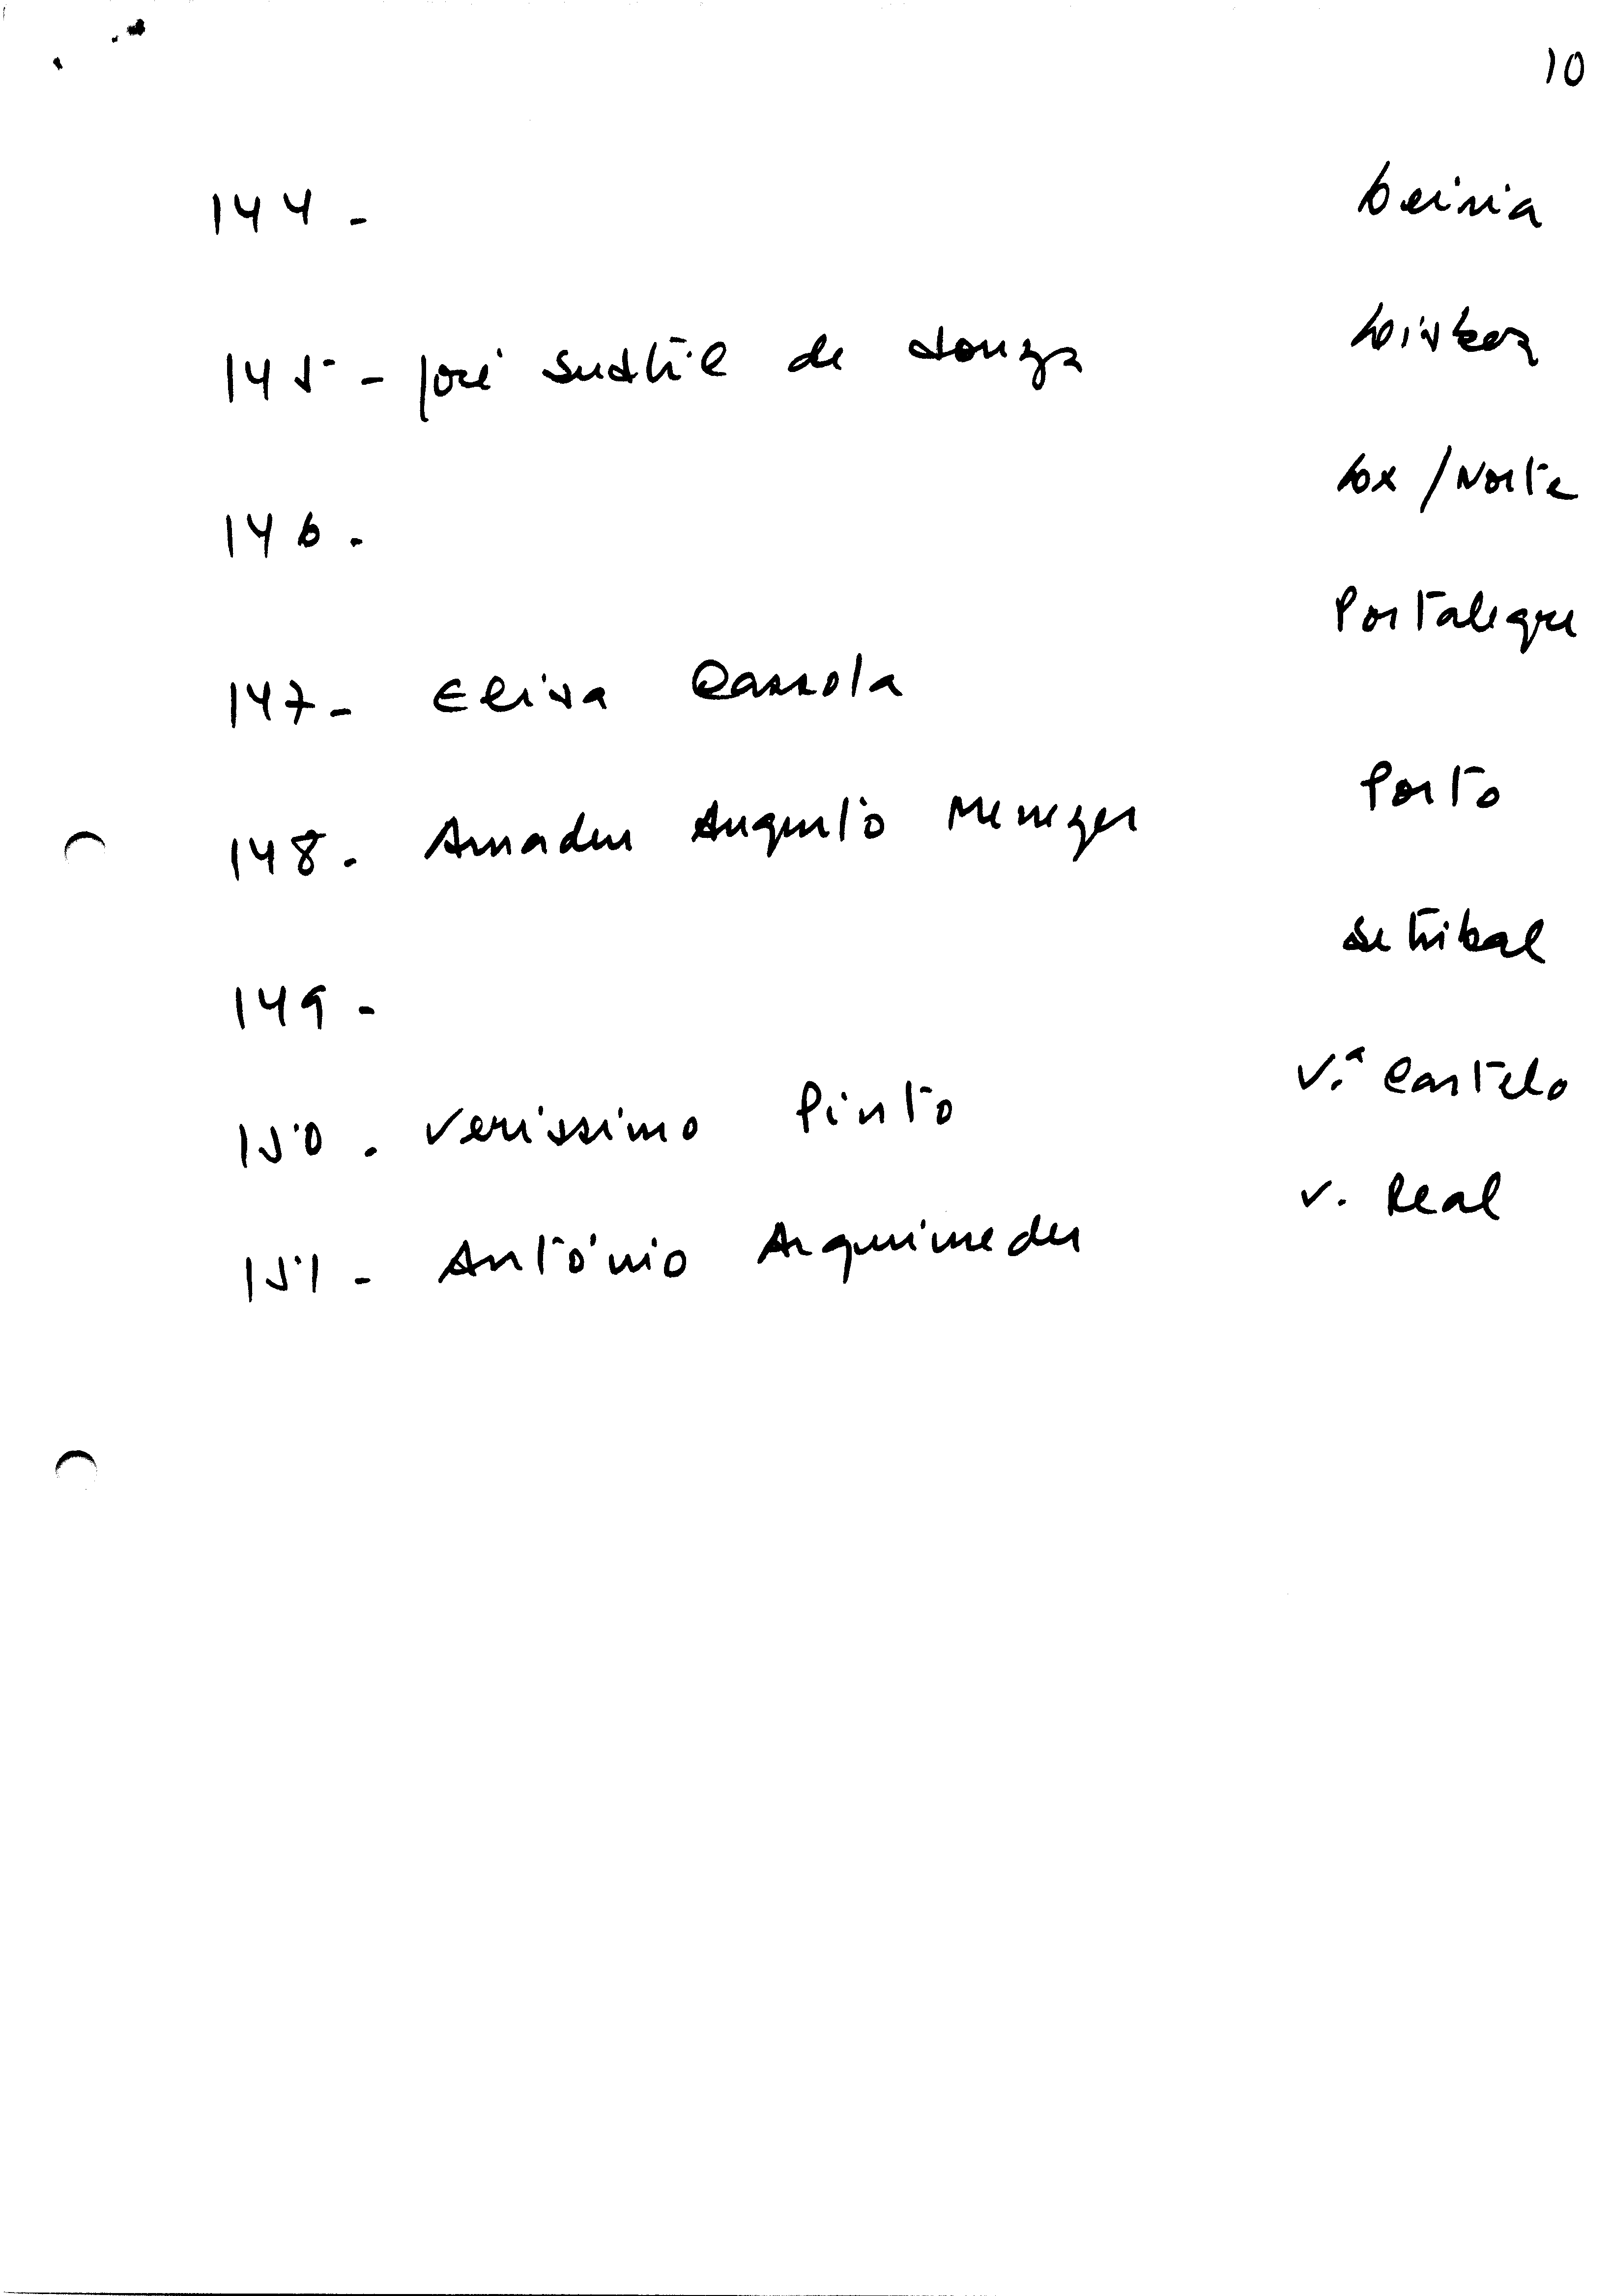 10
144 - Leiria
145 - José Subtil de Souza Lisboa
146 - Lx / Norte
147 - Elisa Carrola Portalegre
148 - Amadeu Augusto Menezes Porto
149 - Setúbal
150 - Veríssimo Pinto V.ª Castelo
151 - António Arquimedes V. Real